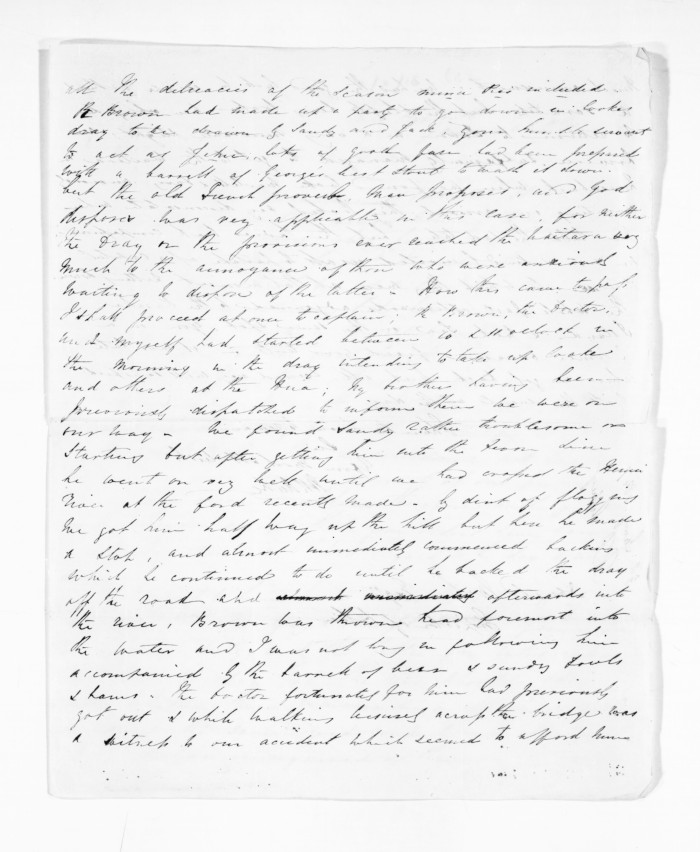 all the delicacies of the season minus Rei included -
R Brown had made up a party to go down in Cookes
dray to be drawn by Sandy and Jack, your humble servant
to act as Jehu, lots of good fare had been prepared
with a barrell of Georges best Stout to wash it down.
but the old French proverb Man proposes, and God
disposes was very applicable in this case, for neither
the Dray or the provisions ever reached the Waitara very
much to the annoyance of those who were anxiously
waiting to dispose of the latter - How this came to pass
I shall proceed at once to explain; R Brown, the Doctor,
and myself had started between 10 & 11 oclock in
the Morning in the dray intending to take up Cooke
and others at the Hua; My brother having been
previously dispatched to inform them we were on
our way - We found Sandy rather troublesome on
starting but after getting him into the Devon line
he went on very well until we had crossed the Henui
River at the ford recently made - By dint of flogging
we got him half way up the hill but here he made
a stop, and almost immediately commenced backing
which he continued to do until he backed the dray
off the road and almost immediately afterwards into
the river, Brown was thrown head foremost into
the water and I was not long in following him
accompanied by the barrell of beer & sundry fowls
& hams - The Doctor fortunately for him had previously
got out & while walking leisurely across the bridge was
a witness to our accident which seemed to afford him